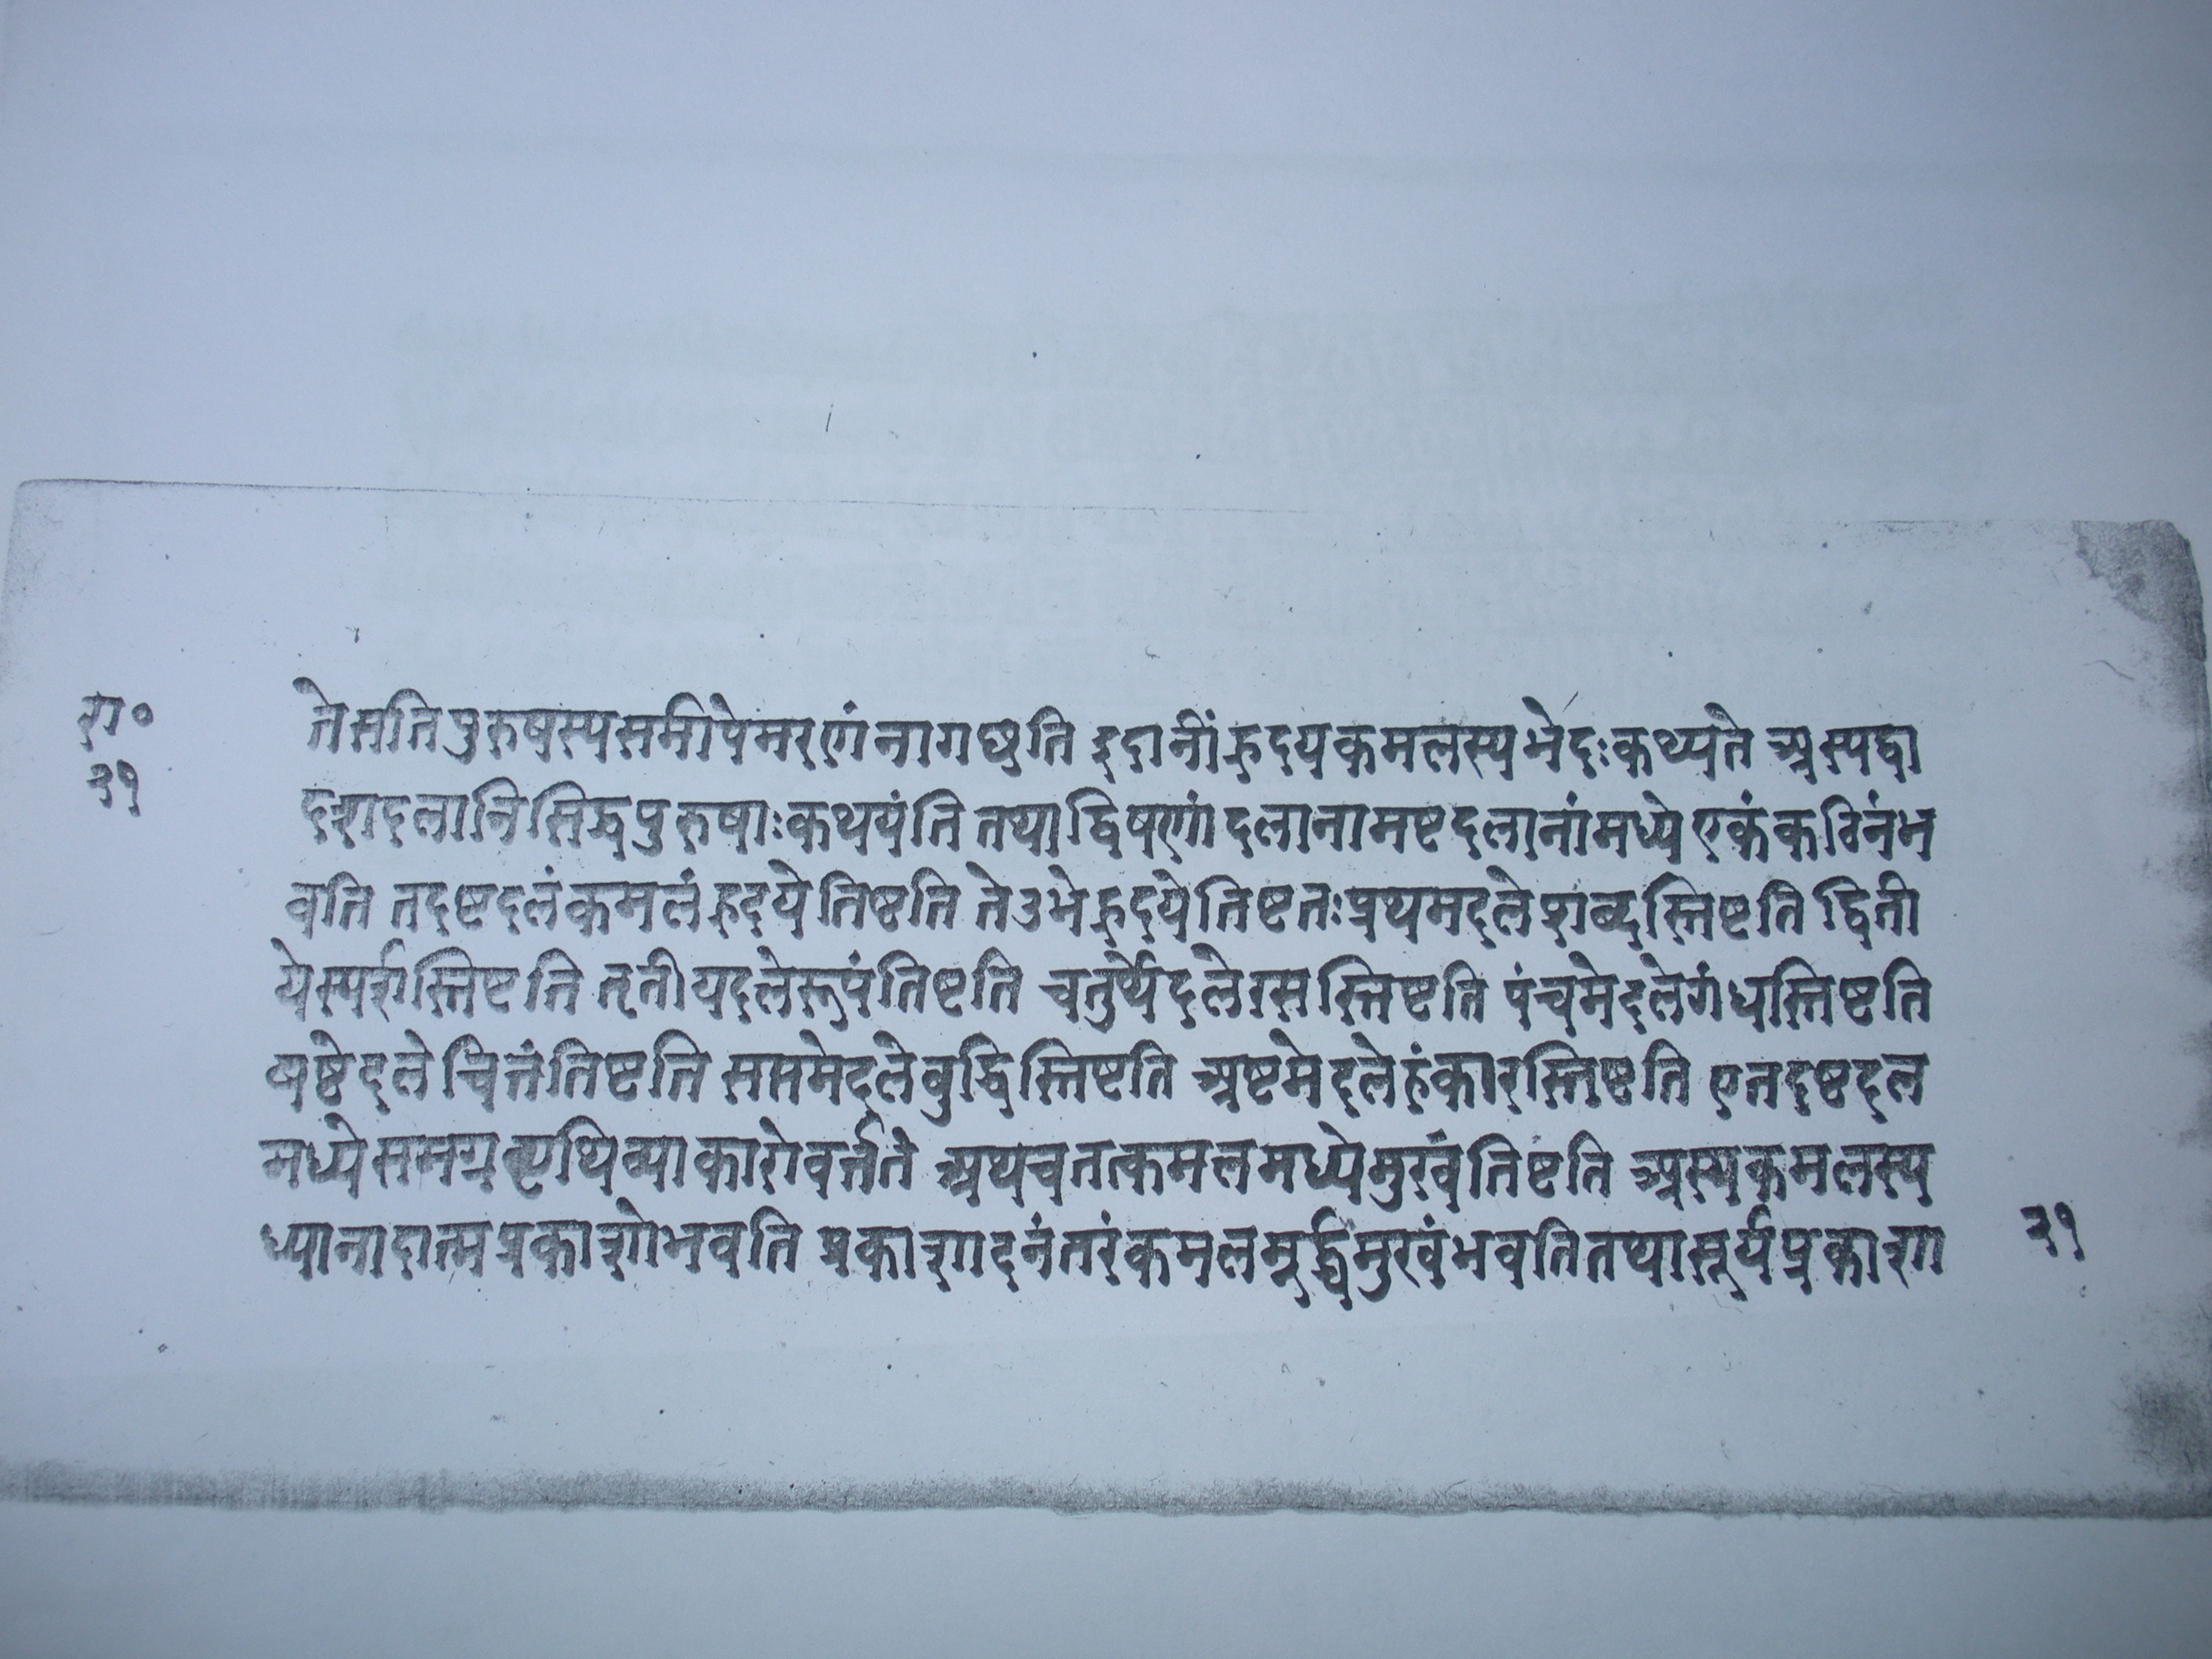 रा॰
२१
तेसतिपुरुषस्यसमीपेमरणंनागछति इदानींहृदयकमलस्यभेदःकथ्यते अस्यद्वा
दशदलानिसिद्धपुरुषाःकथयंति तथाद्विषणांदलानामष्टदलानांमध्येएकंकठिनंभ
वति तदष्टदलंकमलंहृदयेतिष्टति तेउभेहृदयेतिष्टतःप्रथमदलेशब्दस्तिष्टति द्विती
येस्पर्शस्तिष्टति तृतीयदलेरूपंतिष्टति चतुर्थेदलेरसस्तिष्टति पंचमेदलेगंधस्तिष्टति
षष्टेदलेचित्तंतिष्टति सप्तमेदलेबुद्धिस्तिष्टति अष्टमेदलेहंकारस्तिष्टति एतदष्टदल
मध्येसमग्रपृथिव्याकारोवर्त्तते अथचतत्कमलमध्येमुखंतिष्टति अस्यकमलस्य
ध्यानादात्मप्रकाशोभवति प्रकाशादनंतरंकमलमूर्द्ध्वमुखंभवतितथासूर्यप्रकाशा
२१